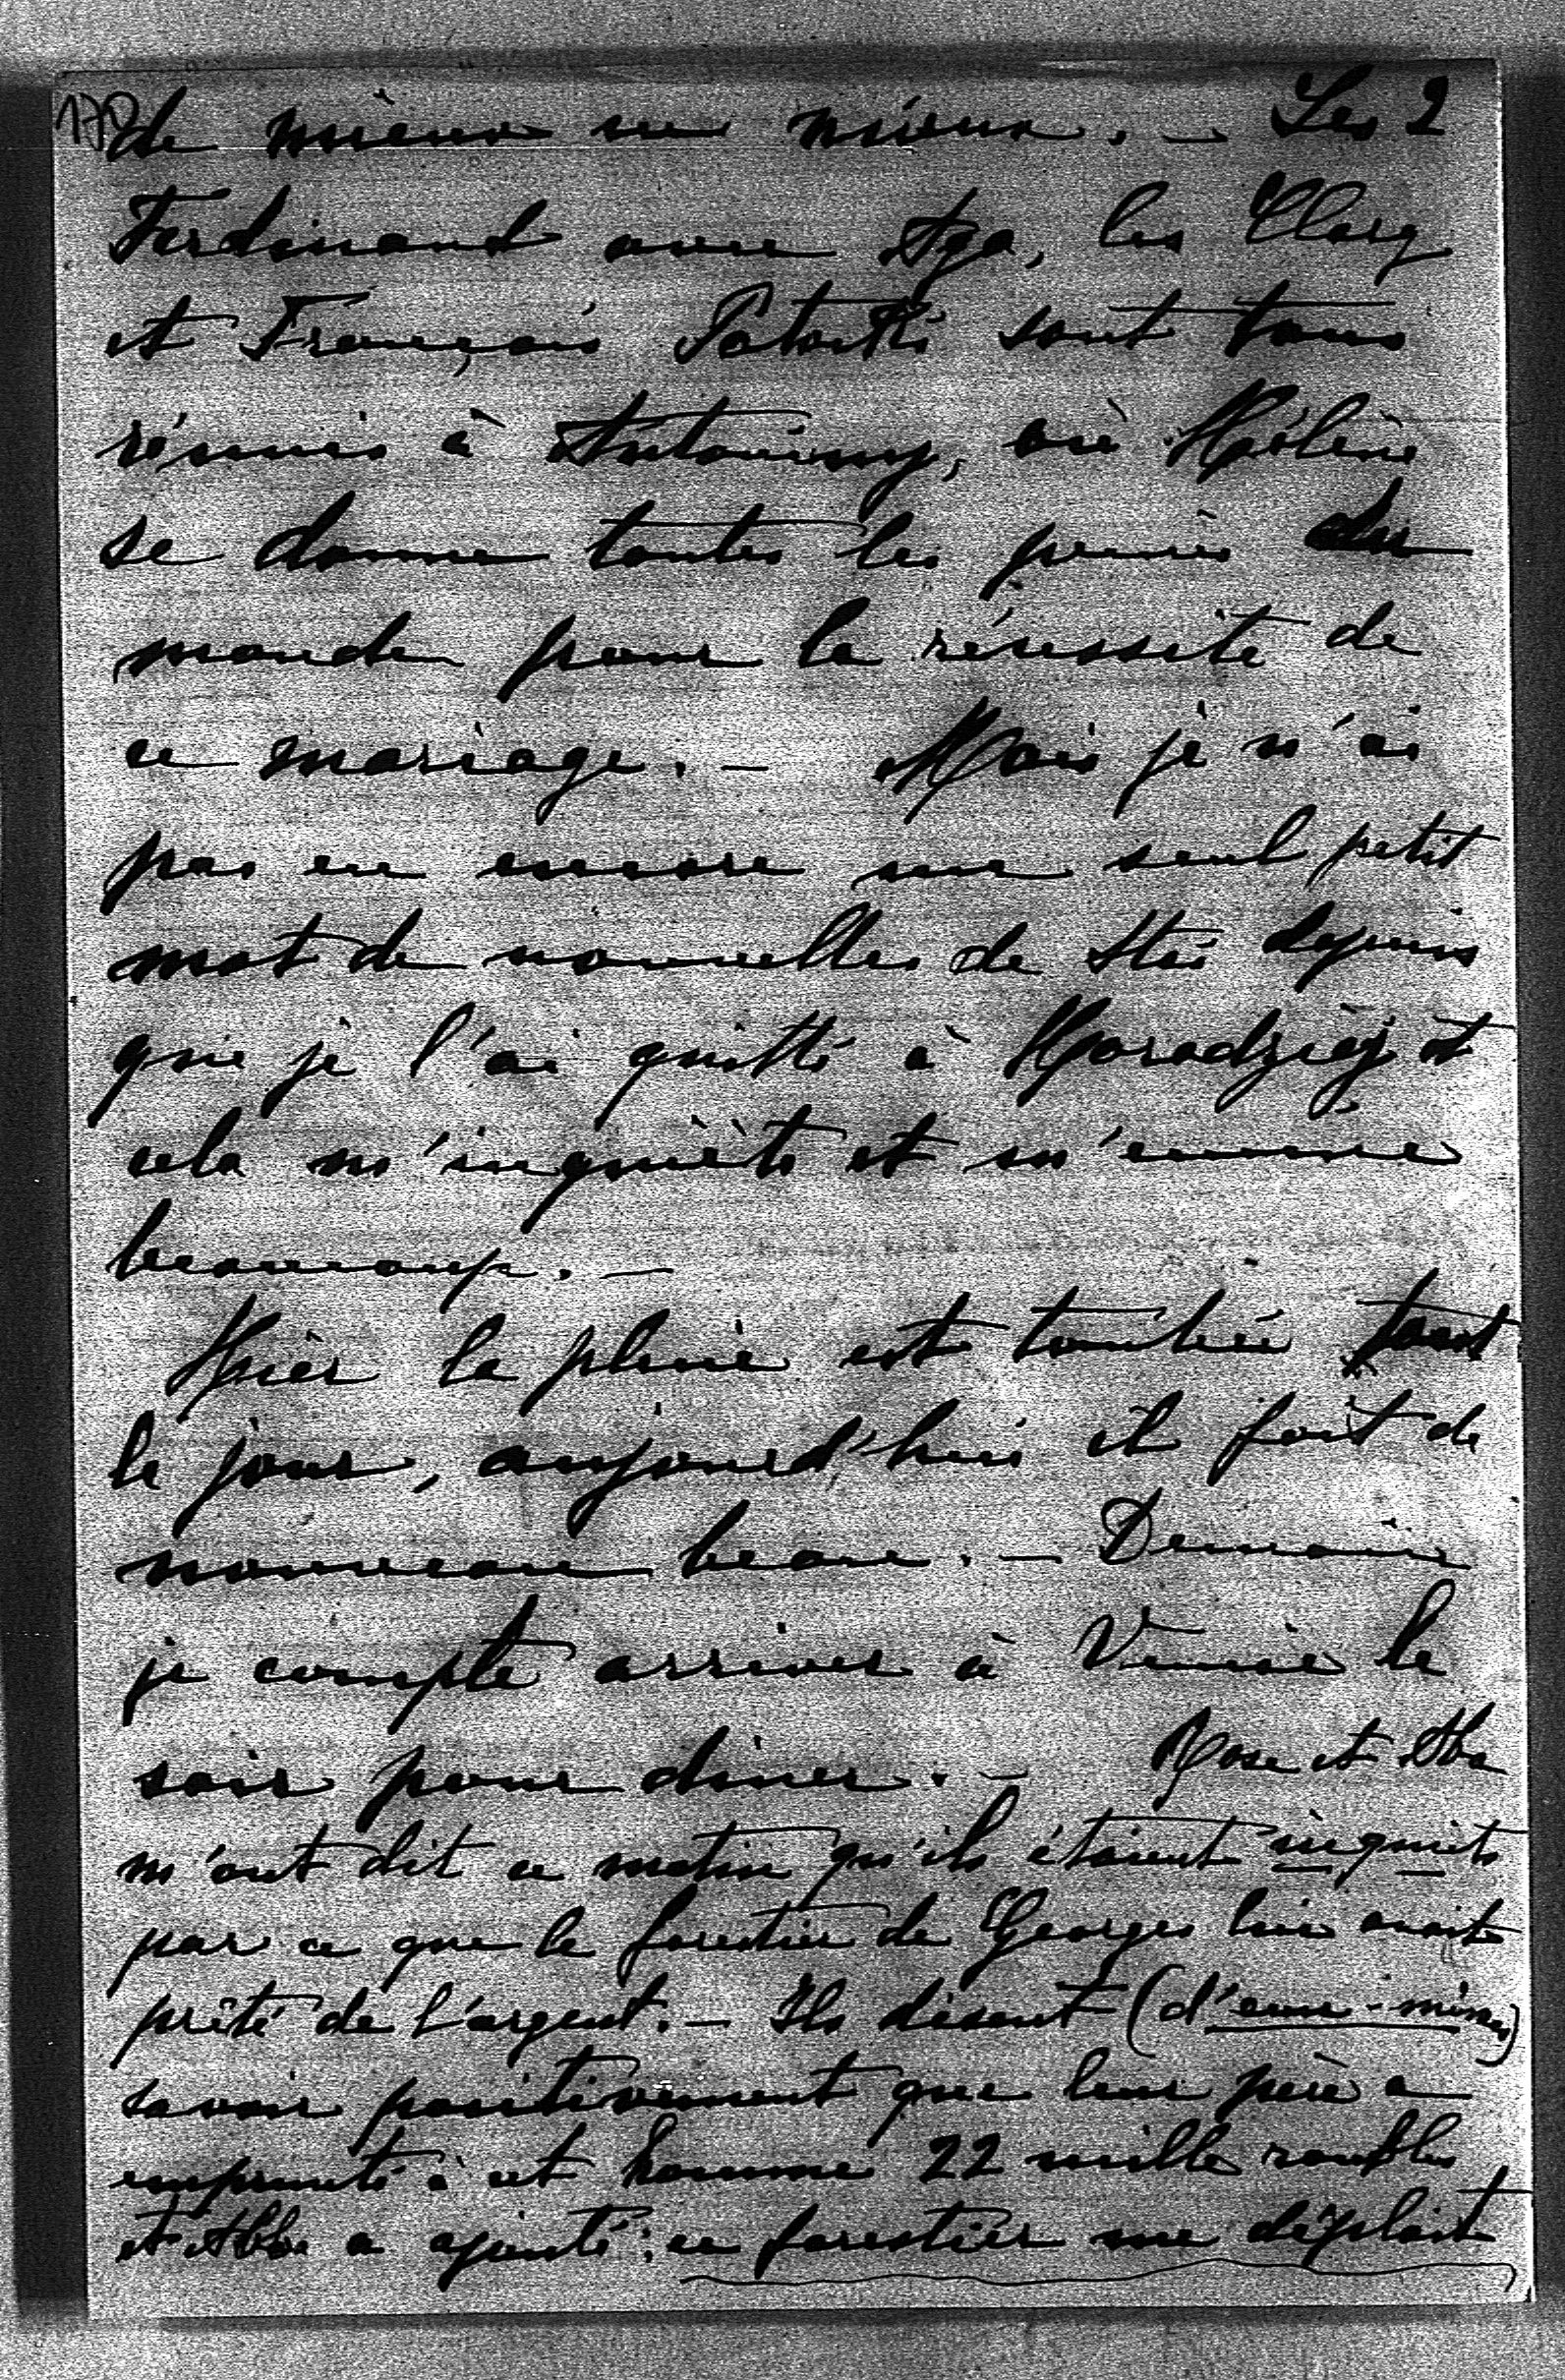 170
de mieux en mieux. – Les 2
Ferdinand avec Aga, les Clary
et François Potocki sont tous
réunis à Antoniny, où Hélène
se donne toutes les peines du
monde pour la réussite de
ce mariage. – Mais je n'ai
pas eu encore un seul petit
mot de nouvelles de Stś depuis
que je l'ai quitté à Horodziéj et
cela m'inquiète et m'ennuie
beaucoup. –
Hier la pluie est tombée tout
le jour, aujourd'hui il fait de
nouveau beau. – Demain
je compte arriver à Venise le
soir pour diner. – Rose et Aba
m'ont dit ce matin qu'ils étaient inquiets
par ce que le forestier de Georges lui avait
prêté de l'argent. – Ils disent (d'eux-mêmes)
savoir positivement que leur père a
emprunté à cet homme 22 mille roubles
et Aba a ajouté: ce forestier me déplait